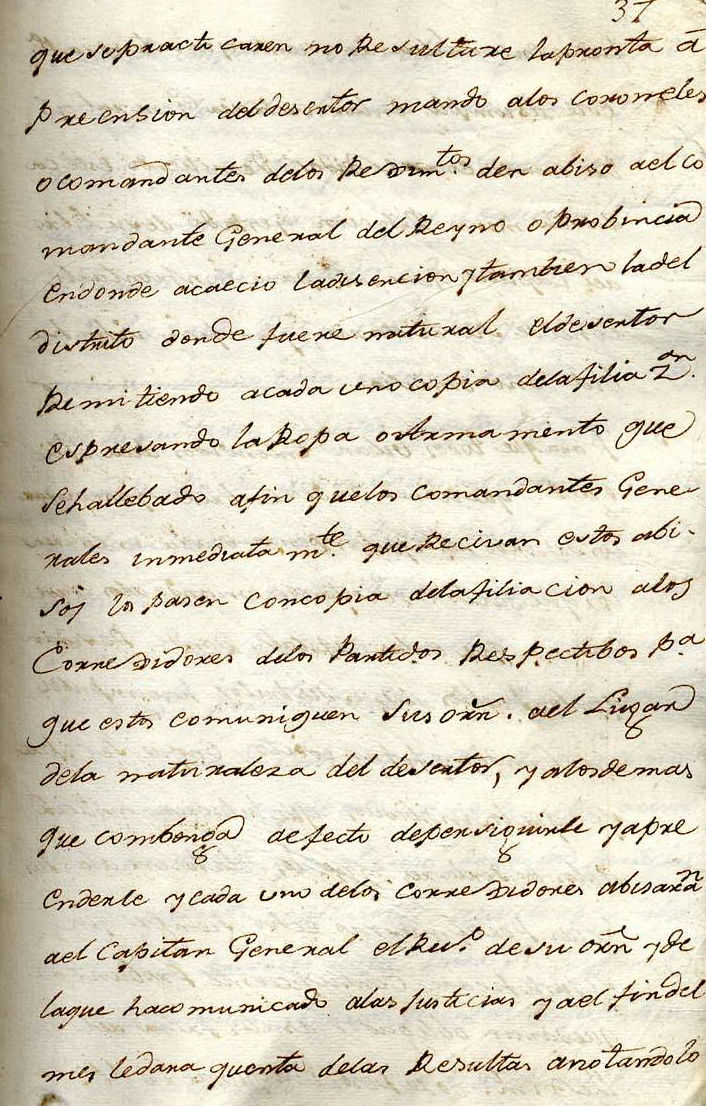 37
que se practi caren no Resultare la pronta à
preension del desertor mando alos coroneles
o comandantes delos Regim.tos den abiso ael co
mandante General del Reyno o Probincia
endonde acaecio ladisencion y tambien ladel
distrito donde fuere natural eldesertor
Remitiendo acada uno copia delafilia z.on
espresando la Ropa o Armamento que
sehallebado afin quelos comandantes Gene-
rales inmediatam.te que Recivan estos abi-
sos los pasen concopia delafiliacion alos
Corregidores delos Partidos Respectibos p.a
que estos comuniquen sus orñ. ael Lugar
dela naturaleza del desertor, y alosdemas
que combenga aefecto depersiguirle yapre
enderle ycada uno delos corregidores abisarán
ael Capitan General el Rev.o de su orñ yde
laque hacomunicado alas Justicias yael findel
mes ledara quenta delas Resultas anotandolo